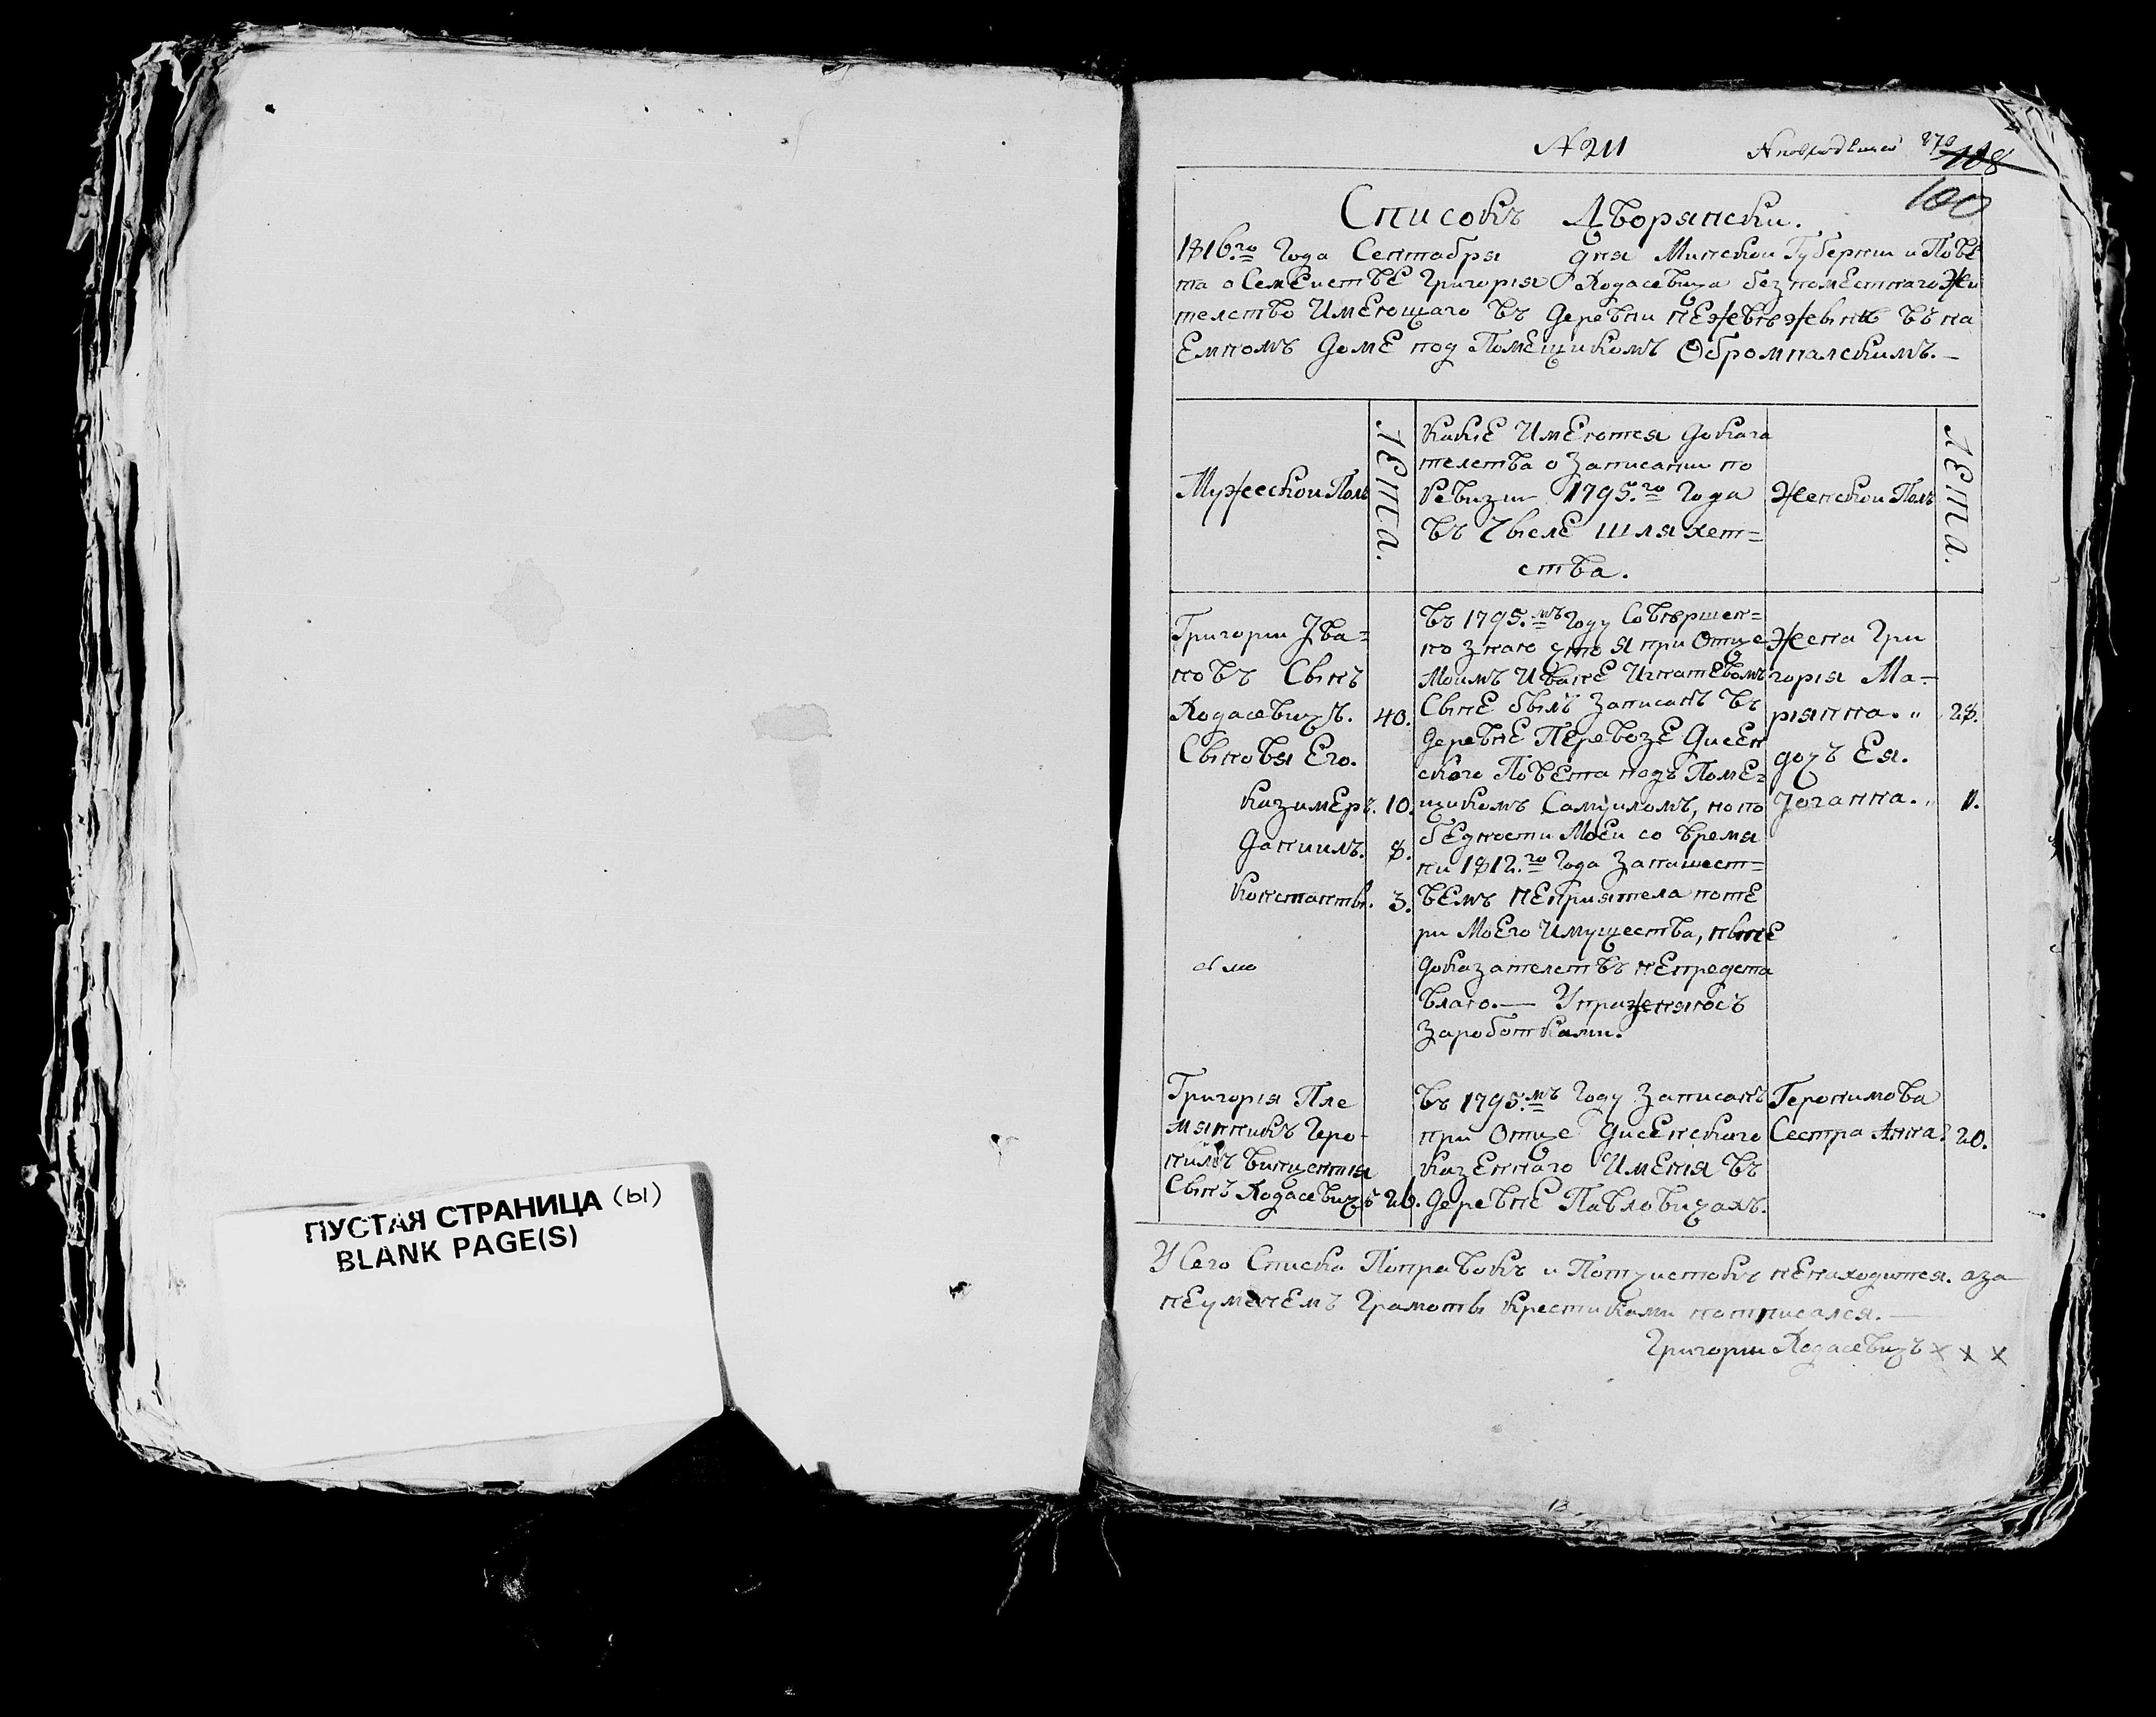 ПУСТАЯ СТРАНИЦА (ы)
BLANK PAGE(S)
№ 211
108
100
Списокъ Дворянски.
1816.го Года Сентября дня Минской Губернии и Пове
та о Семействе Григорїя Ходасевича безпоместнаго Жи
телство Имеющаго въ деревни въ на
Емномъ доме под Помещикомъ Обромпалскимъ.—
Мужескои Полъ
Лета.
Какїе Имеются доказа
телства о Записании по
Ревизии 1795.го Года
въ Числе Шляхет=
ства.
Женскои Полъ
Лета.
Григории Ива=
новъ Сынъ
Ходасевичъ. 40.
Сыновья Его.
Казимеръ. 10.
Даниилъ. 8.
Константы. 3.
въ 1795.мъ Году Совершен=
но знаю что я при Отце
Моимъ Иване Игнатевомъ
Сыне былъ Записанъ въ
деревне Перевозе Дисен
ского Повета подъ Поме=
щикомъ Самуиломъ, но по
бедности Моеи со время
ни 1812.го Года Занашест=
вемъ Неприятела поте
ри Моего Имущества, ныне
доказателствъ Непредста
влаю.— Упражняюсъ
Заработками.
Жена Гри
горїя Ма=
рїянна. „ 28.
дочъ Ея.
Іоганна. „ 1.
Григорїя Пле
мянникъ Геро-
нимъ Винцентїя
Сынъ Ходасевичъ 20.
въ 1795.мъ Году Записанъ
при Отце Дисенского
Казеннаго Именїя въ
деревне Павловичахъ.
Геронимова
Сестра Анна. 20.
У Сего Списка Поправокъ и Потчистокъ Ненаходится. а за
Неуменемъ Грамоты Крестиками потписался.—
Григории Ходасевичъ x x x